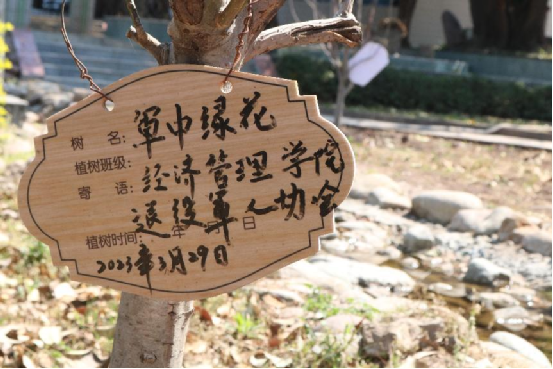 树 名: 军中绿花
植树班级: 经济管理学院
寄 语: 退役军人协会
植树时间: 年 月 日
2023年3月29日